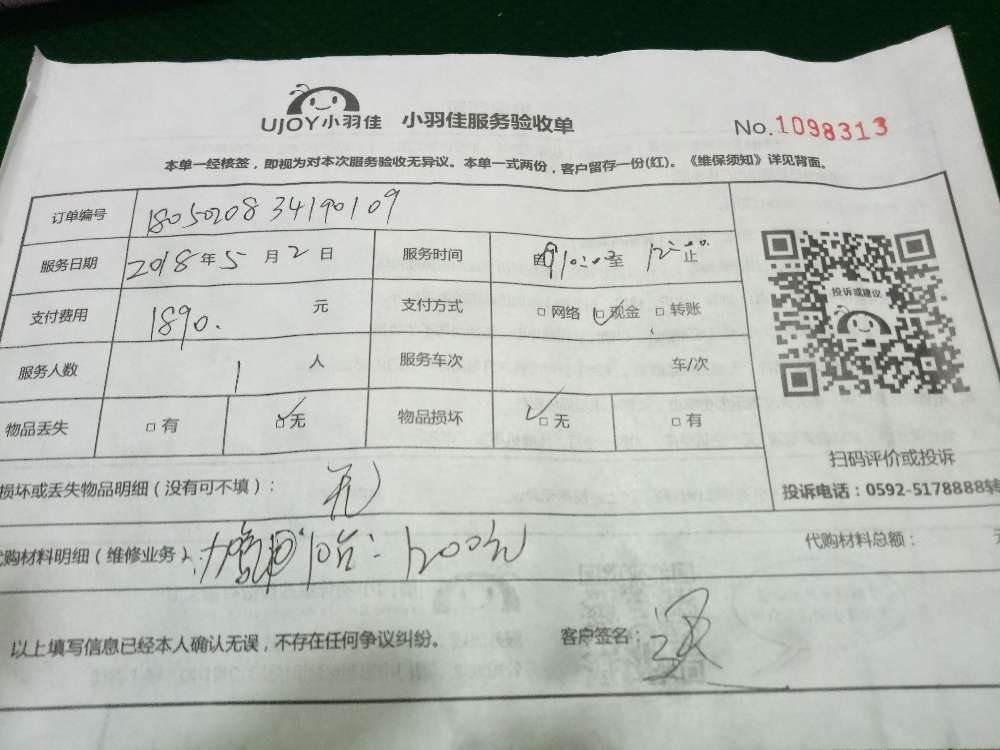 UJOY小羽佳 小羽佳服务验收单
No.1098313
本单一经核签，即视为对本次服务验收无异议。本单一式两份，客户留存一份(红)。《维保须知》详见背面。
订单编号 1805020834190109
服务日期 2018年5月2日 服务时间 自10:00至12:00止
投诉或建议
支付费用 1890. 元 支付方式 □网络 □现金 □转账
服务人数 1 人 服务车次 车/次
物品丢失 □有 □无 物品损坏 □无 □有
扫码评价或投诉
损坏或丢失物品明细（没有可不填）： 无
投诉电话：0592-5178888转
代购材料明细（维修业务）： 10台: 1200元 代购材料总额： 元
以上填写信息已经本人确认无误，不存在任何争议纠纷。 客户签名：